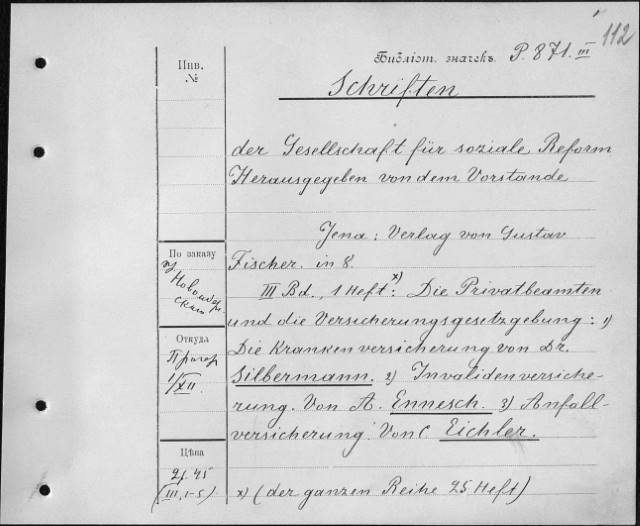 112
Библіот. значекъ P. 871. III
Schriften
Инв.
№
der Gesellschaft für soziale Reform
Herausgegeben von dem Vorstande
Jena: Verlag von Gustav
Fischer. in 8.
III Bd., 1 Heft x): Die Privatbeamten
und die Versicherungsgesetzgebung: 1)
Die Krankenversicherung von Dr.
Silbermann. 2) Invalidenversiche-
rung. Von A. Ennesch. 3) Anfall-
versicherung. Von C. Eichler.
x) (der ganzen Reihe 25 Heft)
По заказу
Откуда
Прагер
1/XII.
Цѣна
2, 45
(III, 1-5)